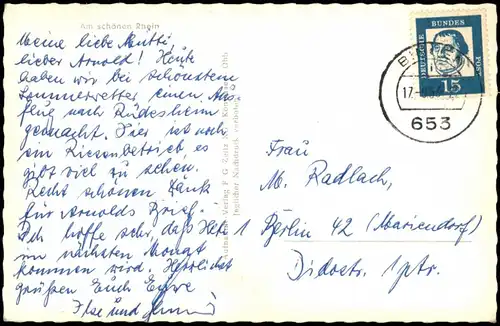 Am schönen Rhein
Meine liebe Mutti,
lieber Arnold! Heute
haben wir bei schönstem
Sommerwetter einen Aus-
flug nach Rüdesheim
gemacht. Hier ist noch
ein Riesenbetrieb, es
gibt viel zu sehen.
Recht schönen Dank
für Arnolds Brief.
Ich hoffe sehr, daß
im nächsten Monat
kommen wird. Herzlichst
grüßen Euch Eure
Ilse und
Verlag F. G.
Jeglicher Nachdruck verboten
DEUTSCHE BUNDES POST
15
BINGEN
17.
653
Frau
M. Radlach,
1 Berlin 42 (Mariendorf)
Didostr. 1 ptr.